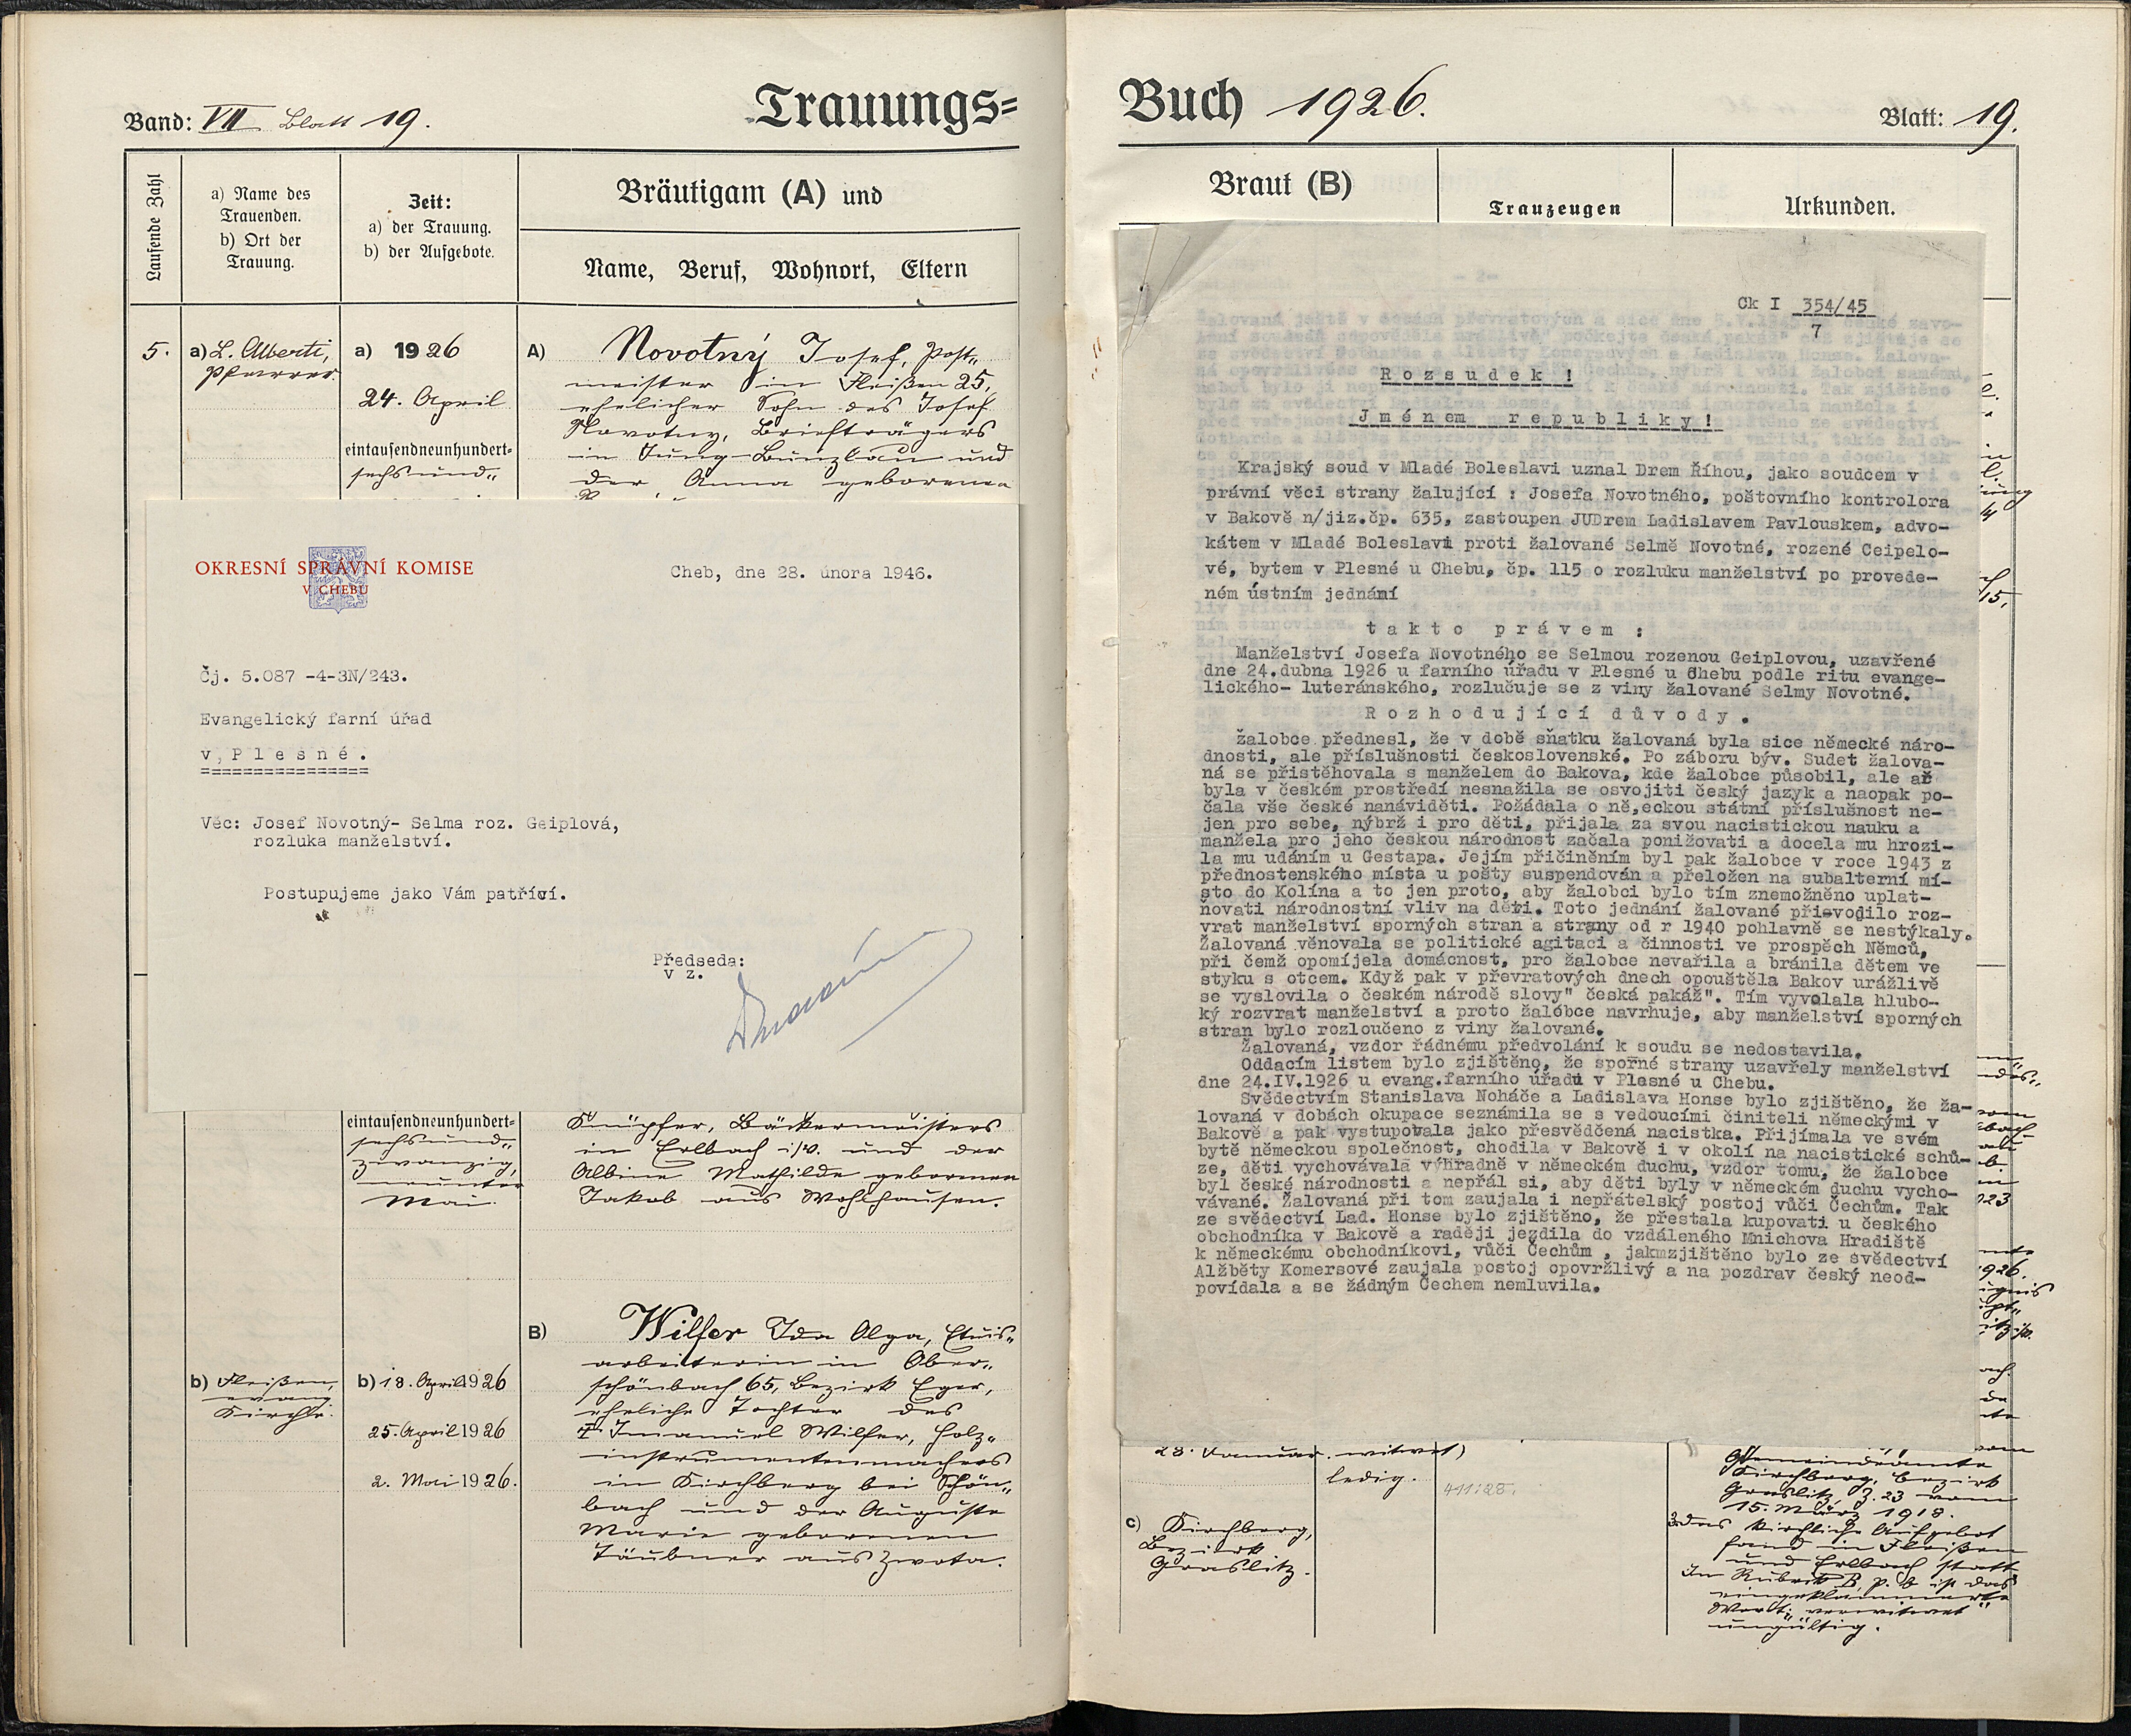 Band: VII Blatt 19.
Trauungs=
Laufende Zahl
a) Name des
Trauenden.
b) Ort der
Trauung.
Zeit:
a) der Trauung.
b) der Aufgebote.
Bräutigam (A) und
Name, Beruf, Wohnort, Eltern
5.
a) L. Alberti,
Pfarrer.
a) 1926
24. April
eintausendneunhundert-
sechsund„
A) Novotný Josef, Post„
meister in Fleißen 25,
ehelicher Sohn des Josef
Novotny, Briefträgers
in Jung-Bunzlau und
der Anna geborenen
OKRESNÍ SPRÁVNÍ KOMISE
V CHEBU
Cheb, dne 28. února 1946.
Čj. 5.087 -4-3N/243.
Evangelický farní úřad
v, P l e s n é .
================
Věc: Josef Novotný- Selma roz. Geiplová,
rozluka manželství.
Postupujeme jako Vám patřící.
Předseda:
v z.
eintausendneunhundert-
sechsund„
zwanzig,
neunter
Mai.
Knüpfer, Bäckermeisters
in Erlbach i/V. und der
Albine Mathilde geborenen
Jakob aus Wohlhausen.
b) Fleißen,
evang.
Kirche.
b) 18. April 1926
25. April 1926
2. Mai 1926.
B) Wilfer Ida Olga, Etuis„
arbeiterin in Ober„
schönbach 65, Bezirk Eger,
eheliche Tochter des
Imanuel Wilfer, Holz„
instrumentenmachers
in Kirchberg bei Schön„
bach und der Auguste
Marie geborenen
Täubner aus Zwota.
Buch 1926.
Blatt: 19.
Braut (B)
Trauzeugen
Urkunden.
Ck I 354/45
7
R o z s u d e k !
J m é n e m r e p u b l i k y !
Krajský soud v Mladé Boleslavi uznal Drem Říhou, jako soudcem v
právní věci strany žalující : Josefa Novotného, poštovního kontrolora
v Bakově n/jiz.čp. 635, zastoupen JUDrem Ladislavem Pavlouskem, advo-
kátem v Mladé Boleslavi proti žalované Selmě Novotné, rozené Ceipelo-
vé, bytem v Plesné u Chebu, čp. 115 o rozluku manželství po provede-
ném ústním jednání
t a k t o p r á v e m :
Manželství Josefa Novotného se Selmou rozenou Geiplovou, uzavřené
dne 24.dubna 1926 u farního úřadu v Plesné u Chebu podle ritu evange-
lického- luteránského, rozlučuje se z viny žalované Selmy Novotné.
R o z h o d u j í c í d ů v o d y .
Žalobce přednesl, že v době sňatku žalovaná byla sice německé náro-
dnosti, ale příslušnosti československé. Po záboru býv. Sudet žalova-
ná se přistěhovala s manželem do Bakova, kde žalobce působil, ale ač
byla v českém prostředí nesnažila se osvojiti český jazyk a naopak po-
čala vše české nanáviděti. Požádala o ně,eckou státní příslušnost ne-
jen pro sebe, nýbrž i pro děti, přijala za svou nacistickou nauku a
manžela pro jeho českou národnost začala ponižovati a docela mu hrozi-
la mu udáním u Gestapa. Jejím přičiněním byl pak žalobce v roce 1943 z
přednostenského místa u pošty suspendován a přeložen na subalterní mí-
sto do Kolína a to jen proto, aby žalobci bylo tím znemožněno uplat-
ňovati národnostní vliv na děti. Toto jednání žalované přivodilo roz-
vrat manželství sporných stran a strany od r 1940 pohlavně se nestýkaly.
Žalovaná věnovala se politické agitaci a činnosti ve prospěch Němců,
při čemž opomíjela domácnost, pro žalobce nevařila a bránila dětem ve
styku s otcem. Když pak v převratových dnech opouštěla Bakov urážlivě
se vyslovila o českém národě slovy" česká pakáž". Tím vyvolala hlubo-
ký rozvrat manželství a proto žalobce navrhuje, aby manželství sporných
stran bylo rozloučeno z viny žalované.
Žalovaná, vzdor řádnému předvolání k soudu se nedostavila.
Oddacím listem bylo zjištěno, že sporné strany uzavřely manželství
dne 24.IV.1926 u evang.farního úřadu v Plesné u Chebu.
Svědectvím Stanislava Noháče a Ladislava Honse bylo zjištěno, že ža-
lovaná v dobách okupace seznámila se s vedoucími činiteli německými v
Bakově a pak vystupovala jako přesvědčená nacistka. Přijímala ve svém
bytě německou společnost, chodila v Bakově i v okolí na nacistické schů-
ze, děti vychovávala výhradně v německém duchu, vzdor tomu, že žalobce
byl české národnosti a nepřál si, aby děti byly v německém duchu vycho-
vávané. Žalovaná při tom zaujala i nepřátelský postoj vůči Čechům. Tak
ze svědectví Lad. Honse bylo zjištěno, že přestala kupovati u českého
obchodníka v Bakově a raději jezdila do vzdáleného Mnichova Hradiště
k německému obchodníkovi, vůči Čechům , jakmzjištěno bylo ze svědectví
Alžběty Komersové zaujala postoj opovržlivý a na pozdrav český neod-
povídala a se žádným Čechem nemluvila.
28. Januar. witwet)
ledig.
c) Kirchberg,
Bezirk
Graslitz.
Gemeindeamte
Kirchberg, Bezirk
Graslitz, Z. 23 vom
15. März 1918.
3. das kirchliche Aufgebot
fand in Fleißen
und Erlbach statt
In Rubrik B, p. b ist das
eingeklammerte
Wort: „verwitwet"
ungültig.